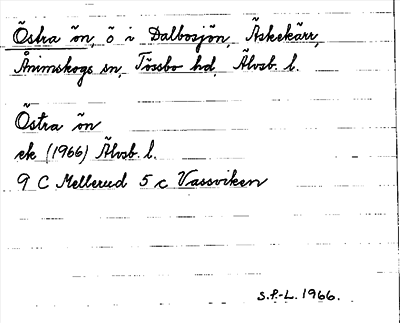 Östra ön, ö i Dalbosjön, Äskekärr,
Ånimskogs sn, Tössbo hd, Älvsb. l.
Östra ön
ek (1966) Älvsb. l.
9 C Mellerud 5 c Vassviken
S.F.-L. 1966.